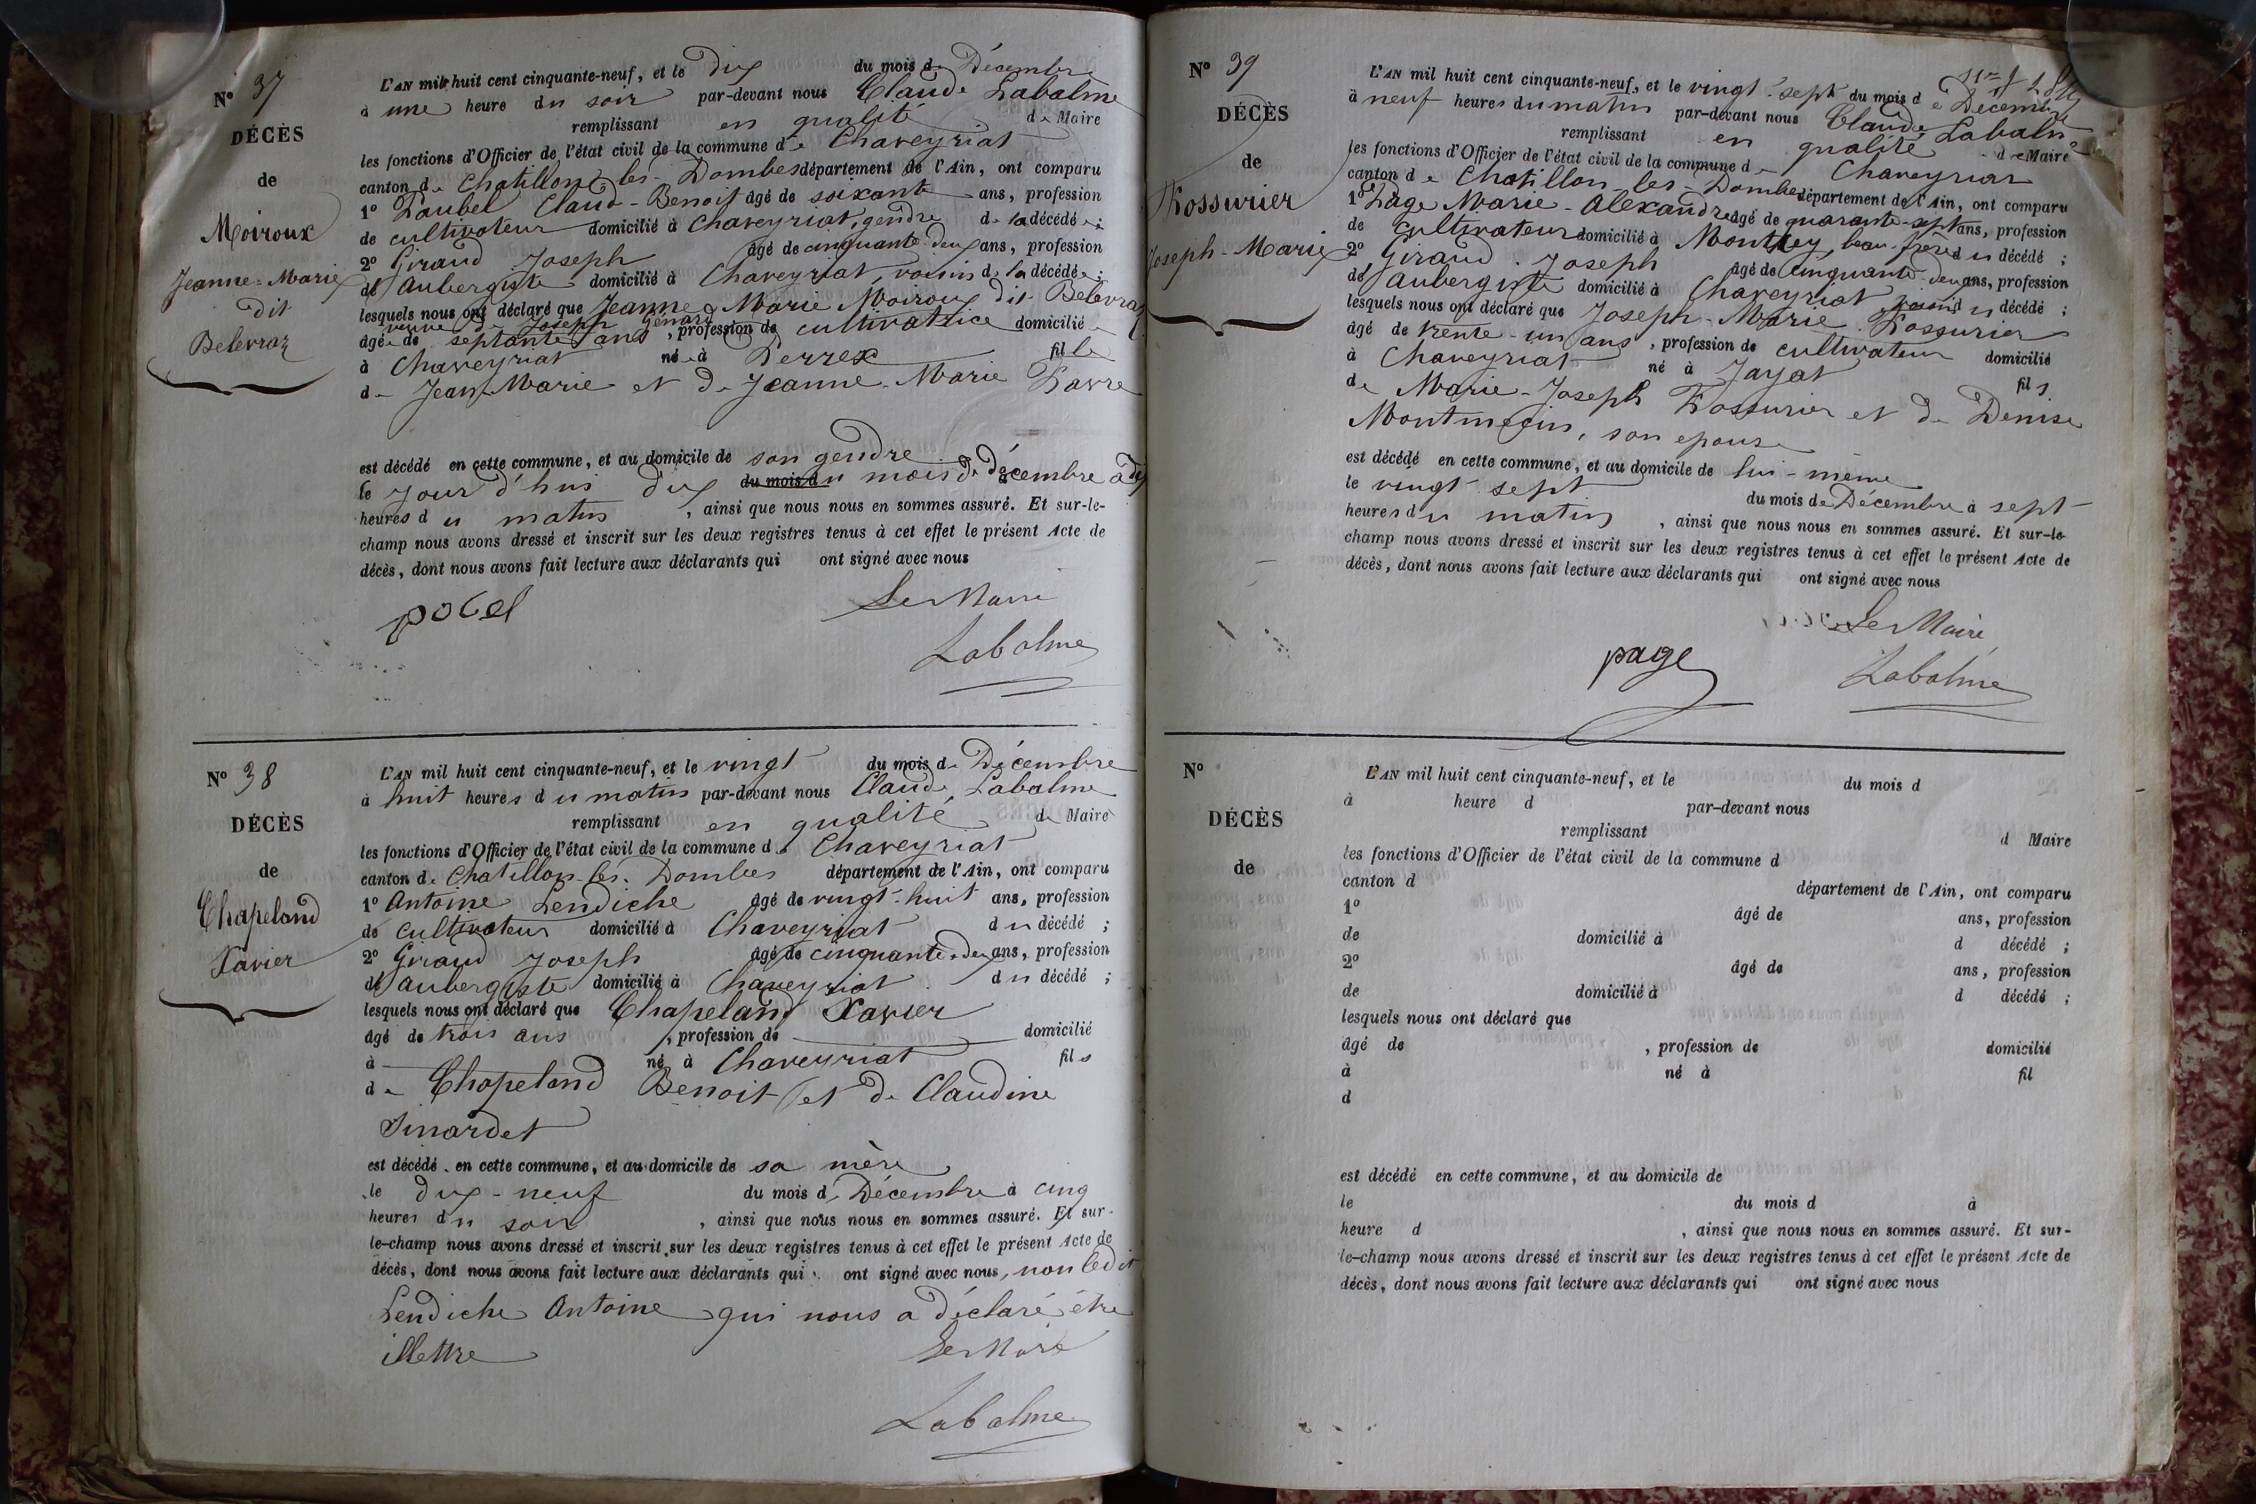 N° 37
DÉCÈS
de
Moiroux
Jeanne-Marie
dit
Belevraz
L'AN mil huit cent cinquante-neuf, et le dix du mois de Décembre
à une heure du soir par-devant nous Claude Labalme
remplissant en qualité de Maire
les fonctions d'Officier de l'état civil de la commune de Chaveyriat
canton de Chatillon-les-Dombes département de l'Ain, ont comparu
1° Claude-Benoit âgé de soixante ans, profession
de cultivateur domicilié à Chaveyriat, gendre de la décédée;
2° Giraud Joseph âgé de cinquante-deux ans, profession
d'Aubergiste domicilié à Chaveyriat, voisin de la décédée;
lesquels nous ont déclaré que Jeanne Marie Moiroux dit Belevraz
veuve de Joseph
âgée de septante ans, profession de cultivatrice domiciliée
à Chaveyriat née à Perrex fille
de Jean-Marie et de Jeanne-Marie
est décédé en cette commune, et au domicile de son gendre
le jour d'hui dix du mois d du mois de décembre à dix
heures du matin, ainsi que nous nous en sommes assuré. Et sur-le-
champ nous avons dressé et inscrit sur les deux registres tenus à cet effet le présent Acte de
décès, dont nous avons fait lecture aux déclarants qui ont signé avec nous
Le Maire
Labalme
N° 38
DÉCÈS
de
Chapeland
Xavier
L'AN mil huit cent cinquante-neuf, et le vingt du mois de Décembre
à huit heures du matin par-devant nous Claude Labalme
remplissant en qualité de Maire
les fonctions d'Officier de l'état civil de la commune de Chaveyriat
canton de Chatillon-les-Dombes département de l'Ain, ont comparu
1° Antoine Lendiche âgé de vingt-huit ans, profession
de cultivateur domicilié à Chaveyriat du décédé;
2° Giraud Joseph âgé de cinquante-deux ans, profession
d'aubergiste domicilié à Chaveyriat du décédé;
lesquels nous ont déclaré que Chapeland Xavier
âgé de trois ans, profession de domicilié
à né à Chaveyriat fils
de Chapeland Benoit et de Claudine
Sinardet
est décédé en cette commune, et au domicile de sa mère
le dix-neuf du mois de Décembre à cinq
heures du soir, ainsi que nous nous en sommes assuré. Et sur-
le-champ nous avons dressé et inscrit sur les deux registres tenus à cet effet le présent Acte de
décès, dont nous avons fait lecture aux déclarants qui ont signé avec nous, non ledit
Lendiche Antoine qui nous a déclaré être
illettre
Le Maire
Labalme
N° 39
DÉCÈS
de
Fossurier
Joseph-Marie
L'AN mil huit cent cinquante-neuf, et le vingt-sept du mois de Décembre
à neuf heures du matin par-devant nous Claude Labalme
remplissant en qualité de Maire
les fonctions d'Officier de l'état civil de la commune de Chaveyriat
canton de Chatillon-les-Dombes département de l'Ain, ont comparu
1° Page Marie-Alexandre âgé de quarante-sept ans, profession
de cultivateur domicilié à beau-frère du décédé;
2° Giraud Joseph âgé de cinquante-deux ans, profession
d'Aubergiste domicilié à Chaveyriat voisin du décédé;
lesquels nous ont déclaré que Joseph-Marie Fossurier
âgé de trente-un ans, profession de cultivateur domicilié
à Chaveyriat né à Jayat fils
de Marie-Joseph Fossurier et de Denise
son epouse
est décédé en cette commune, et au domicile de lui-même
le vingt sept du mois de Décembre à sept
heures du matin, ainsi que nous nous en sommes assuré. Et sur-le-
champ nous avons dressé et inscrit sur les deux registres tenus à cet effet le présent Acte de
décès, dont nous avons fait lecture aux déclarants qui ont signé avec nous
Le Maire
page Labalme
N°
DÉCÈS
de
L'AN mil huit cent cinquante-neuf, et le du mois d
à heure d par-devant nous
remplissant d Maire
les fonctions d'Officier de l'état civil de la commune d
canton d département de l'Ain, ont comparu
1° âgé de ans, profession
de domicilié à d décédé;
2° âgé de ans, profession
de domicilié à d décédé;
lesquels nous ont déclaré que
âgé de , profession de domicilié
à né à fil
d
est décédé en cette commune, et au domicile de
le du mois d à
heure d , ainsi que nous nous en sommes assuré. Et sur-
le-champ nous avons dressé et inscrit sur les deux registres tenus à cet effet le présent Acte de
décès, dont nous avons fait lecture aux déclarants qui ont signé avec nous